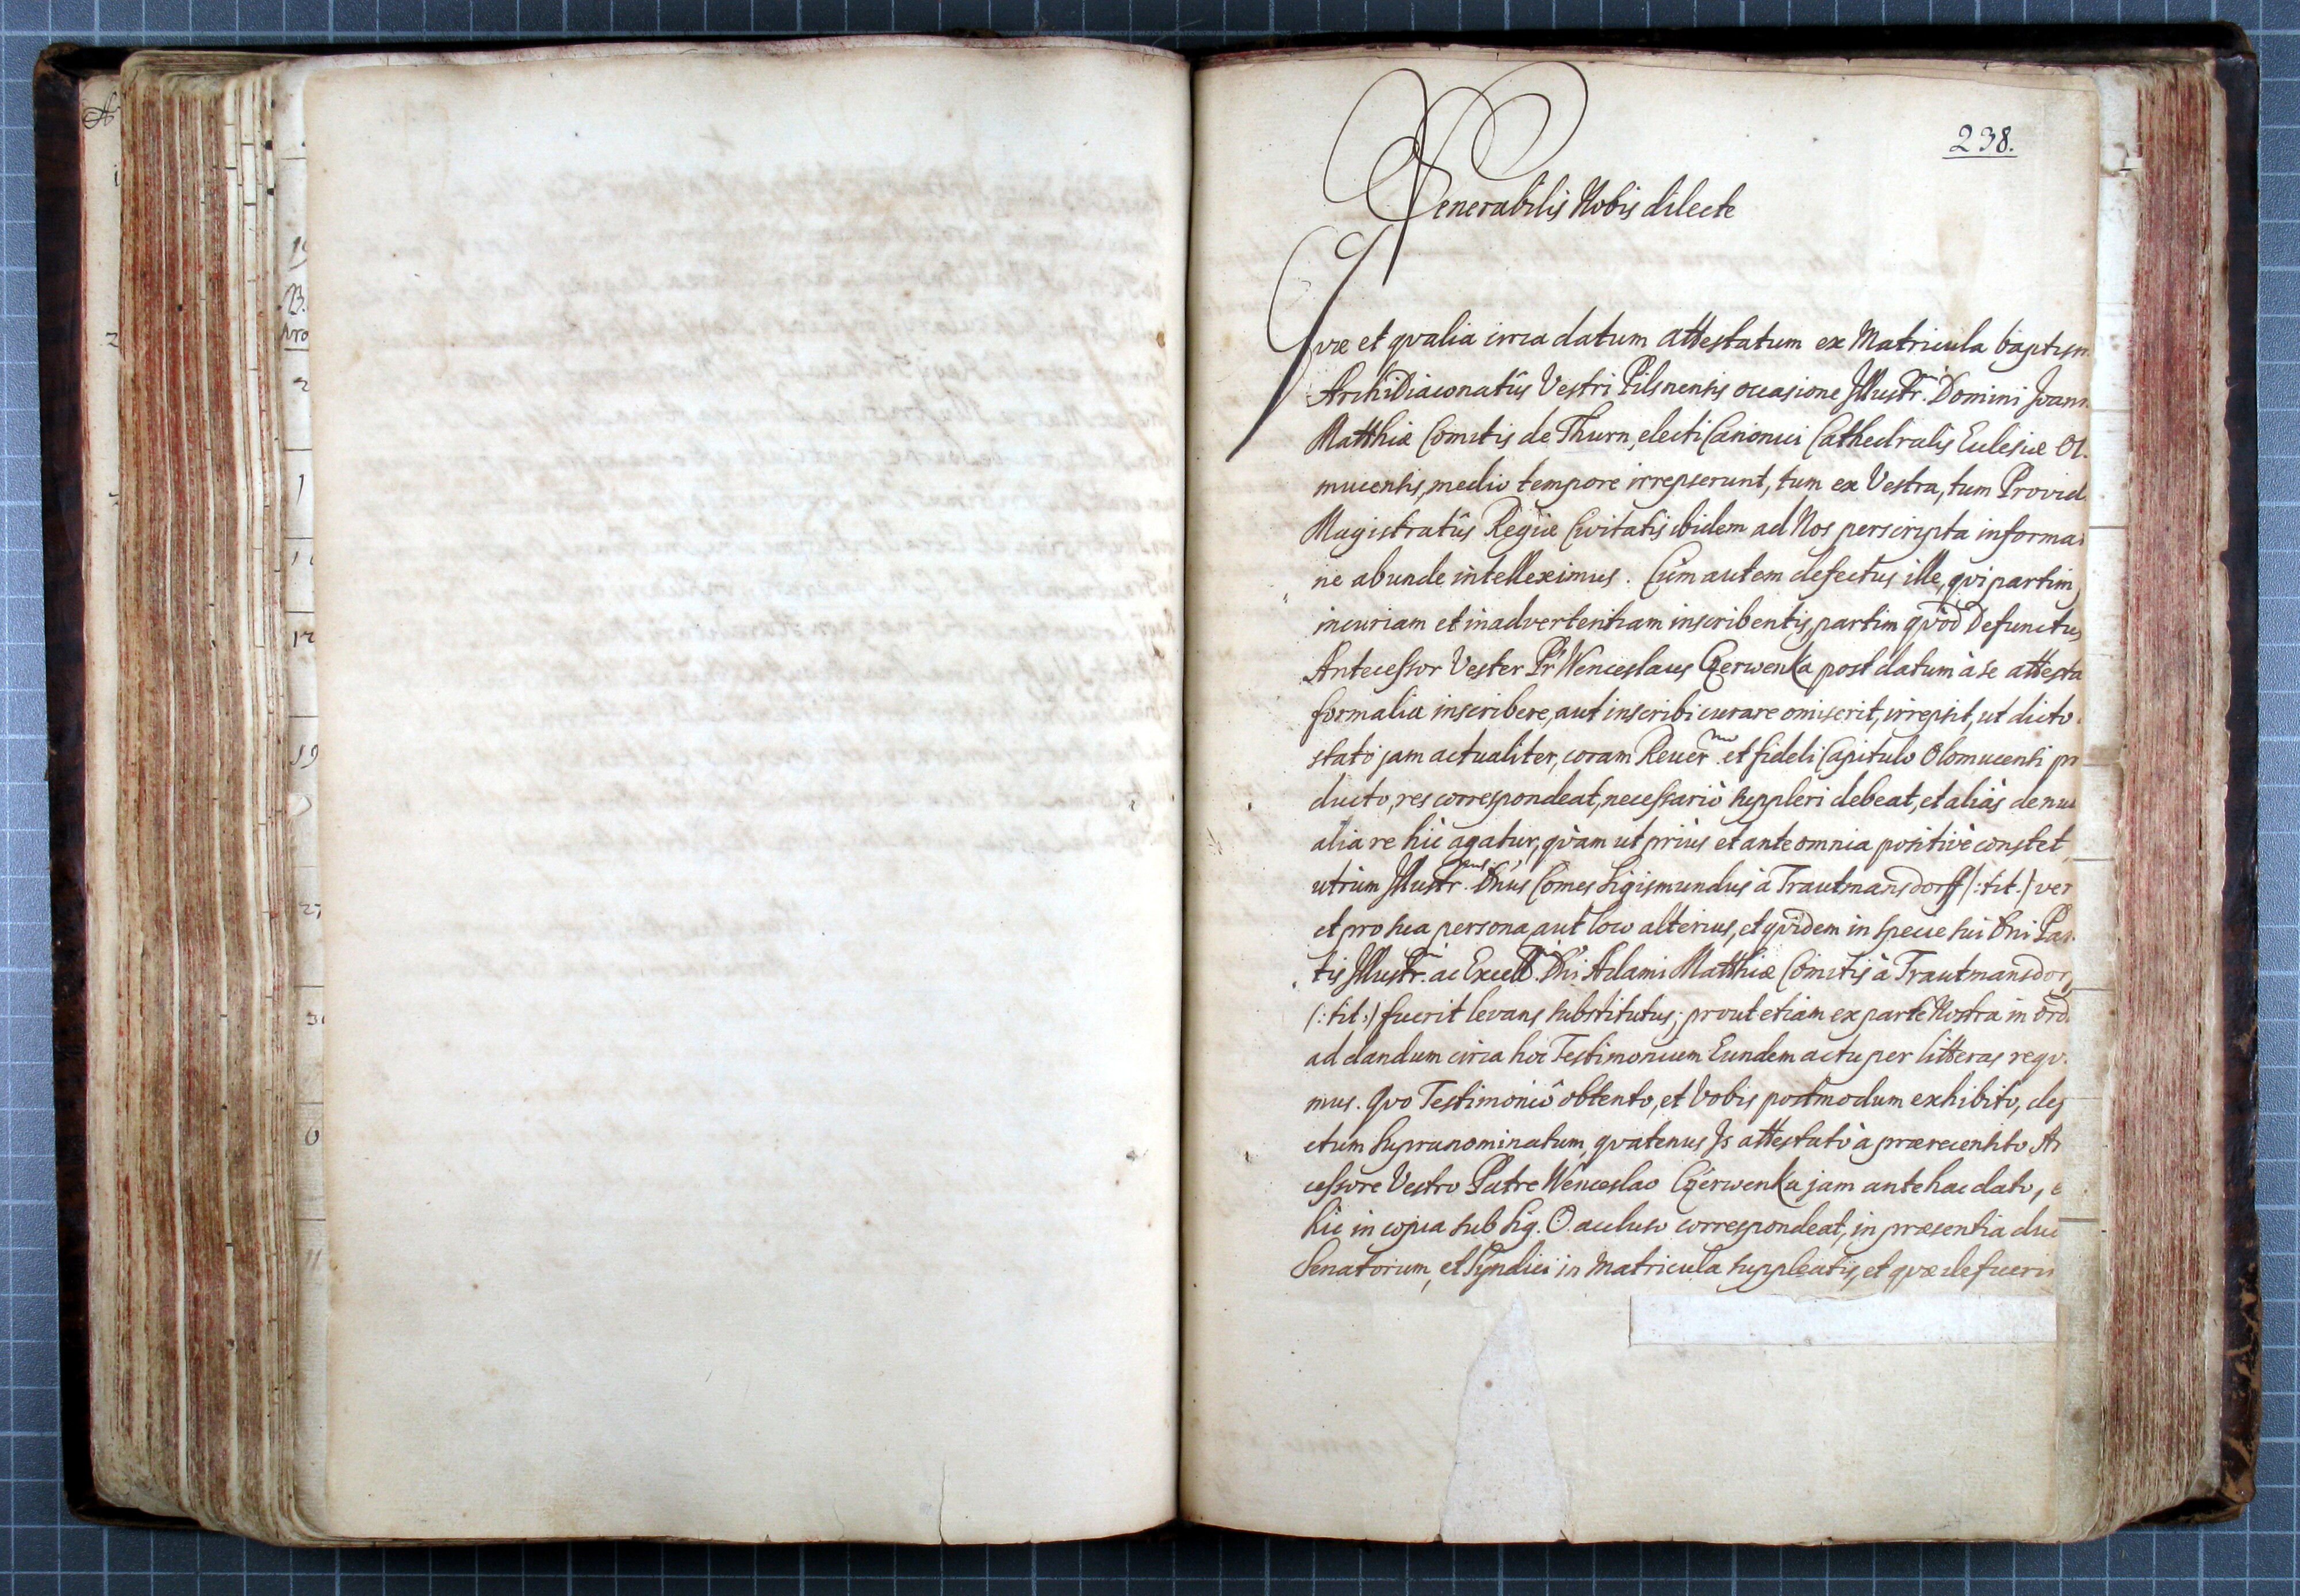 238.
Venerabilis Nobis dilecte
Qvæ et qvalia circa datum attestatum ex Matricula baptism
ArchiDiaconatûs Vestri Pilsnensis occasione Illustr. Domini Joann
Matthiæ Comitis de Thurn, electi Canonici Cathedralis Ecclesiæ Ol.
mucensis, medio tempore irrepserunt, tum ex Vestra, tum Provid
Magistratûs Regiæ Civitatis ibidem ad Nos perscripta informa
ne abunde intelleximus. Cùm autem defectus ille, qvi partim
incuriam et inadvertentiam inscribentis, partim qvòd Defunctus
Antecessor Vester Pr Wenceslaus Czerwenka post datum à se attesta
formalia inscribere, aut inscribi curare omiserit, irrepsit, ut dicto
stato jam actualiter, coram Rever.mo et fideli Capitulo Olomucensi pr
ducto, res correspondeat, necessariò suppleri debeat, et aliàs de nul
alia re hîc agatur, qvàm ut priùs et ante omnia positivè constet,
utrùm Illustr.mus Dnus Comes Sigismundus à Trautmansdorff /:tit:/ ver
et pro sua persona, aut loco alterius, et qvidem in specie sui Dni Pa
tis Illustr. ac Excell. Dni Adami Matthiæ Comitis à Trautmansdor
/:tit:/ fuerit levans substitutus; prout etiam ex parte Nostra in ord
ad dandum circa hoc Testimonium Eundem actu per litteras reqv
mus. Qvo Testimoniô obtento, et Vobis postmodum exhibito, def
ctum supranominatum, qvatenus Is attestatô à prærecensito An
cessore Vestro Patre Wenceslao Czerwenka jam antehac dato, e
hic in copia sub Sig. O. accluso correspondeat, in præsentia duo
Senatorum, et Syndici in Matricula suppleatis, et qvæ defueri